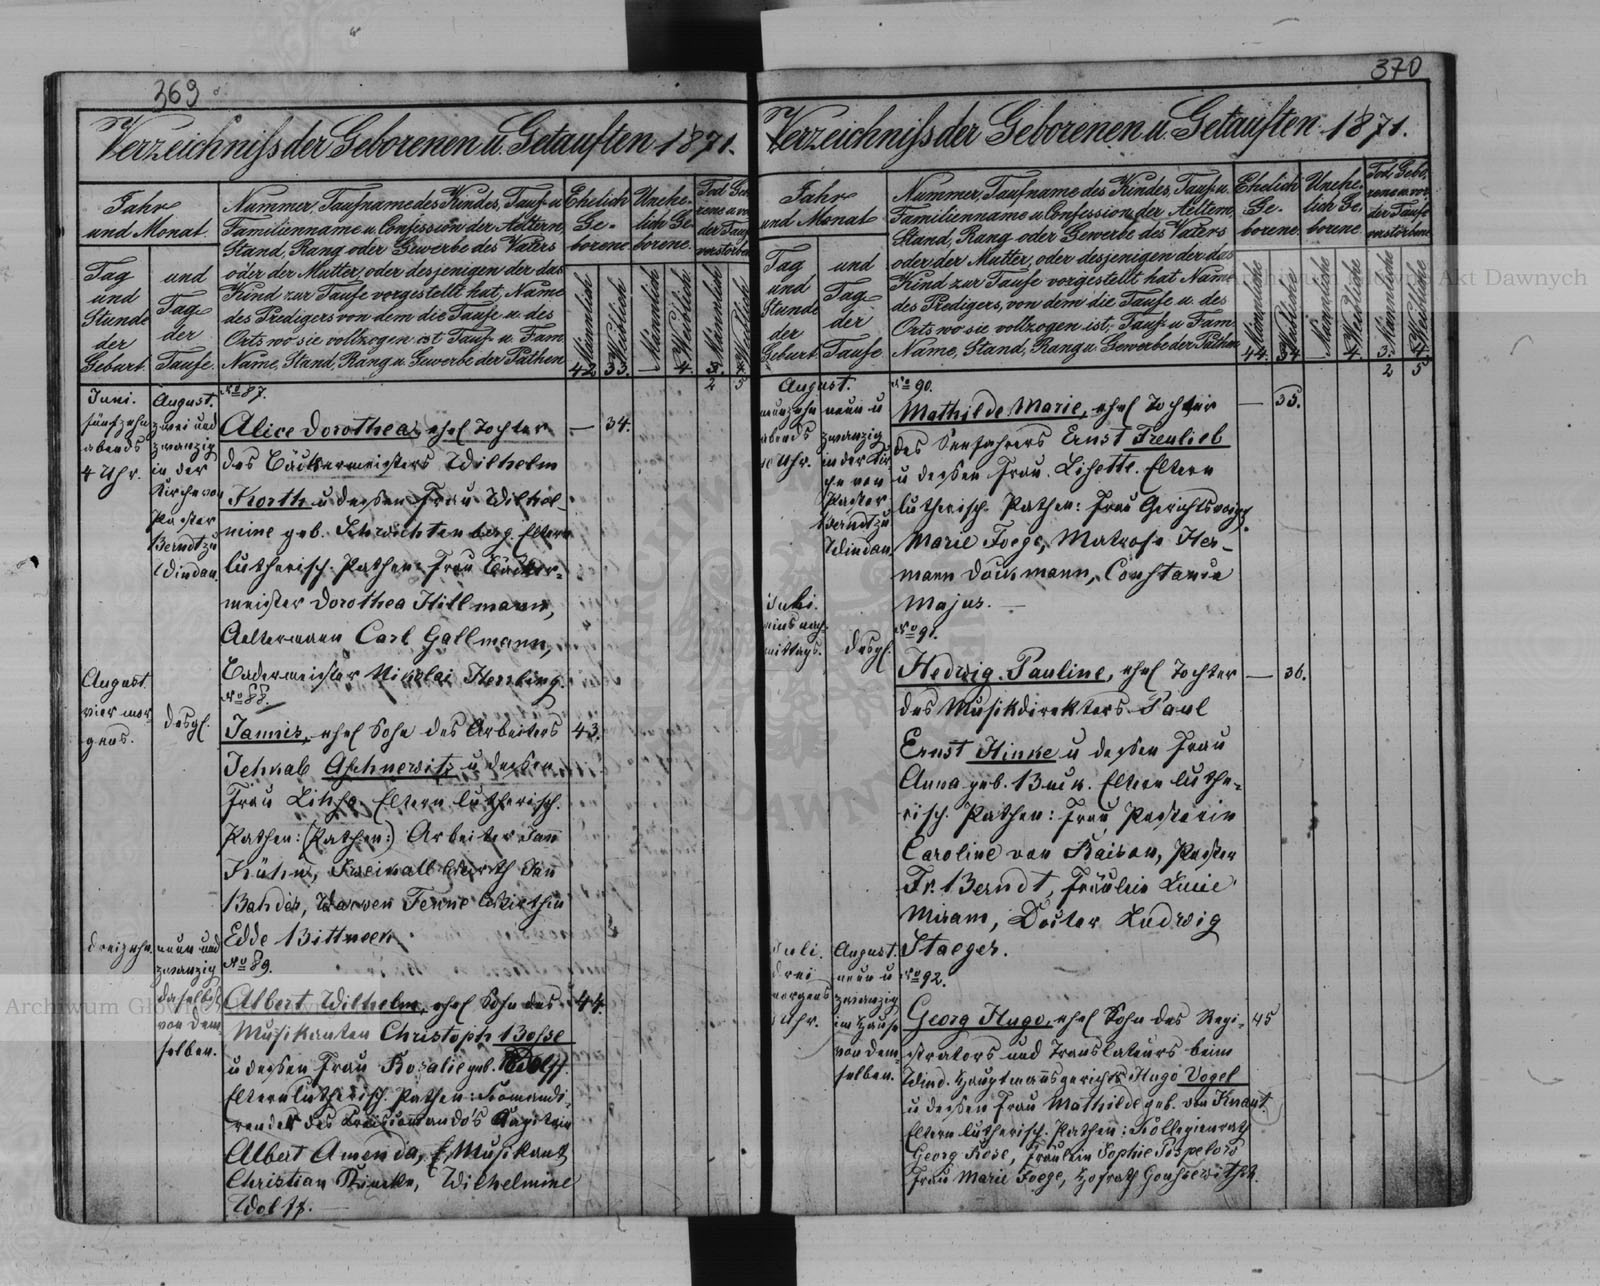 369
Verzeichniss der Geborenen u. Getauften 1871.
Jahr
und Monat.
Tag
und
Stunde
der
Geburt.
und
Tag
der
Taufe.
Nummer, Taufname des Kindes, Tauf u.
Familienname u. Confession der Aeltern,
Stand, Rang oder Gewerbe des Vaters
oder der Mutter, oder desjenigen der das
Kind zur Taufe vorgestellt hat, Name
des Predigers von dem die Taufe u. des
Orts wo sie vollzogen ist Tauf u. Fam.
Name, Stand, Rang u. Gewerbe der Pathen
Ehelich
Ge-
borene
Unehe-
lich Ge-
borene
Männlich
Weiblich
Männlich
Weiblich
Männlich
Weiblich
42 33. — 4. 3. 4
2 5
Juni.
fünfzehn
abends
4 Uhr.
August.
zwei und
zwanzig
in der
Kirche von
Pastor
Berndt zu
Windau.
No 87.
Alice Dorothea, ehel Tochter — 34.
des Bäckermeisters Wilhelm
Korth u dessen Frau Wilhel-
mine geb. Schwichtenberg. Eltern
lutherisch. Pathen: Frau Bäcker-
meister Dorothea Hillmann,
Aeltermann Carl Gallmann,
Bäckermeister Nikolai
August.
vier mor-
gens.
desgl.
No 88.
Jannis, ehel Sohn des Arbeiters 43.
Jehkab u dessen
Frau Lihse. Eltern lutherisch.
Pathen: (Pathen:) Arbeiter Jann
Wirth Jann
Wirthin
Edde
dreizehn.
neun und
zwanzig
daselbst
von dem-
selben.
No 89.
Albert Wilhelm, ehel Sohn des 44.
Musikanten Christoph Bosse
u dessen Frau Rosalie geb. Wolff
Eltern lutherisch. Pathen: Komandi-
render des Kapitain
Albert Amenda, Musikant
Christian Wilhelmine
Wolff. —
370
Verzeichniss der Geborenen u. Getauften 1871.
Jahr
und Monat
Tag
und
Stunde
der
Geburt.
und
Tag
der
Taufe
Nummer, Taufname des Kindes, Tauf u.
Familienname u. Confession der Aeltern,
Stand, Rang oder Gewerbe des Vaters
oder der Mutter, oder desjenigen der das
Kind zur Taufe vorgestellt hat Name
des Predigers, von dem die Taufe u. des
Orts wo sie vollzogen ist; Tauf u. Fam.
Name, Stand, Rang u. Gewerbe der Pathen
Ehelich
Ge-
borene
Unehe-
lich Ge-
borene
Männliche
Weibliche
Männliche
Weibliche
Männliche
Weibliche
44. 34 4. 3. 4.
2 5
August.
neunzehn
abends
Uhr.
neun u
zwanzig
in der Kir-
che von
Pastor
Berndt zu
Windau.
No 90.
Mathilde Marie, ehel Tochter — 35.
des Seefahrers Ernst Freulieb
u dessen Frau Lisette. Eltern
lutherisch. Pathen: Frau Gerichtsvoigt
Marie Foege, Matrose Her-
mann Dockmann, Constancia
Majus. —
Juli.
mittags.
desgl.
No 91.
Hedwig Pauline, ehel Tochter — 36.
des Musikdirektors Paul
Ernst Hinke u dessen Frau
Anna geb. Buck. Eltern luthe-
risch. Pathen: Frau Pastorin
Caroline von Raison, Pastor
Fr. Berndt, Fräulein Lucie
Miram, Doctor Ludwig
Staeger.
Juli.
drei
morgens
Uhr.
August.
neun u
zwanzig
im Hause
von dem-
selben.
No 92.
Georg Hugo, ehel Sohn des Regi- 45
strators und Translateurs beim
Wind. Hauptmannsgericht Hugo Vogel
u dessen Frau Mathilde geb. von Knaut.
Eltern lutherisch. Pathen: Kollegienrath
Georg Rose, Fräulein Sophie Pospelow
Frau Marie Foege, Hofrath
Archiwum Główne Akt Dawnych